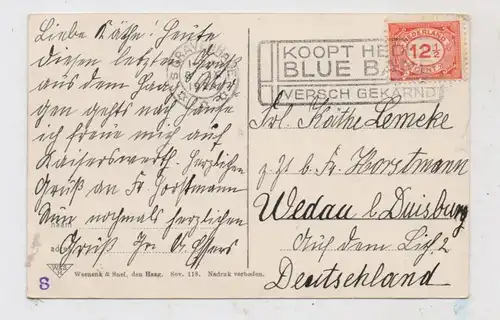 Liebe Käthe! Heute
diesen letzten Gruß
aus dem Haag. Mor-
gen gehts nach Hause
ich freue mich auf
Kaiserswerth. Herzlichen
Gruß an Fr. Horstmann
nochmals herzlichen
Gruß Ihr
naam
adres
WES
Wuenenk & Snel, den Haag. Sev. 118. Nadruk verboden.
S
'S GRAVENHAGE
KOOPT HED
BLUE BA
VERSCH GEKARND
NEDERLAND
12½
CENT
Frl. Käthe Lemcke
z. Zt b. Fr. Horstmann
Wedau b. Duisburg
Auf dem Lich. 2
Deutschland